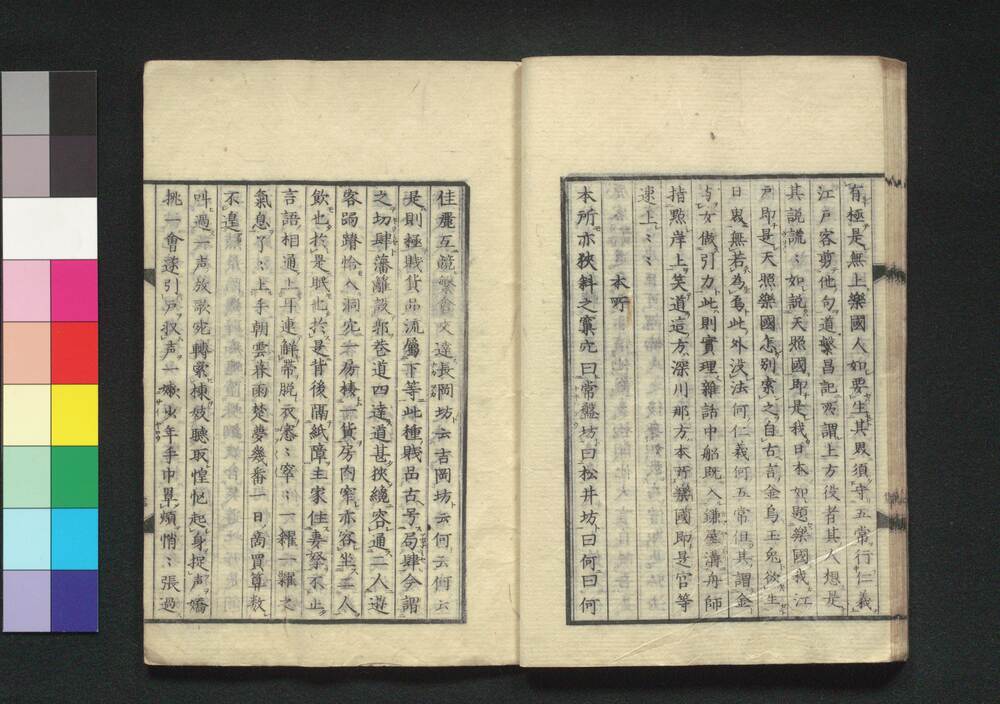 有極是無上樂國人如要生其界須守五常行仁義
江戸客剪他句道繁昌記所謂上方役者其人想是
其説謊々如説天照國即是我日本如題樂國我江
戸即是天照樂國怎別索之自古言金烏玉兎欲生
日界無若為烏此外没法何仁義何五常但其謂金
与女做引力此則實理雜話中船既入鎌屋溝舟師
指點岸上笑道這方深川那方本所樂國即是官等
速上々々
本所
本所亦狹斜之窠穴曰常盤坊曰松井坊曰何曰何
佳麗互競繁會交達長岡坊云吉岡坊云何云何云
是則極賤貨品流屬下等此種賤品古号局肆今謂
之切肆藩籬設郭巷道四達道甚狹纔容通二人遊
客跼蹐恰入洞穴一房棲一貨房内窄亦容坐二人
飲也於是眠也於是背後隔紙障主家住妻祭不止
言語相通上牀連觧帶脱衣悤々窣々一糶一糴之
氣息了々上手朝雲暮雨楚夢幾番一日高買算敖
不遑
叫過一声放歌宛轉索棟妓聽取惶忙起身捉声嬌
挑一會遂引戸収声一嫩少年手巾單頰悄々張過